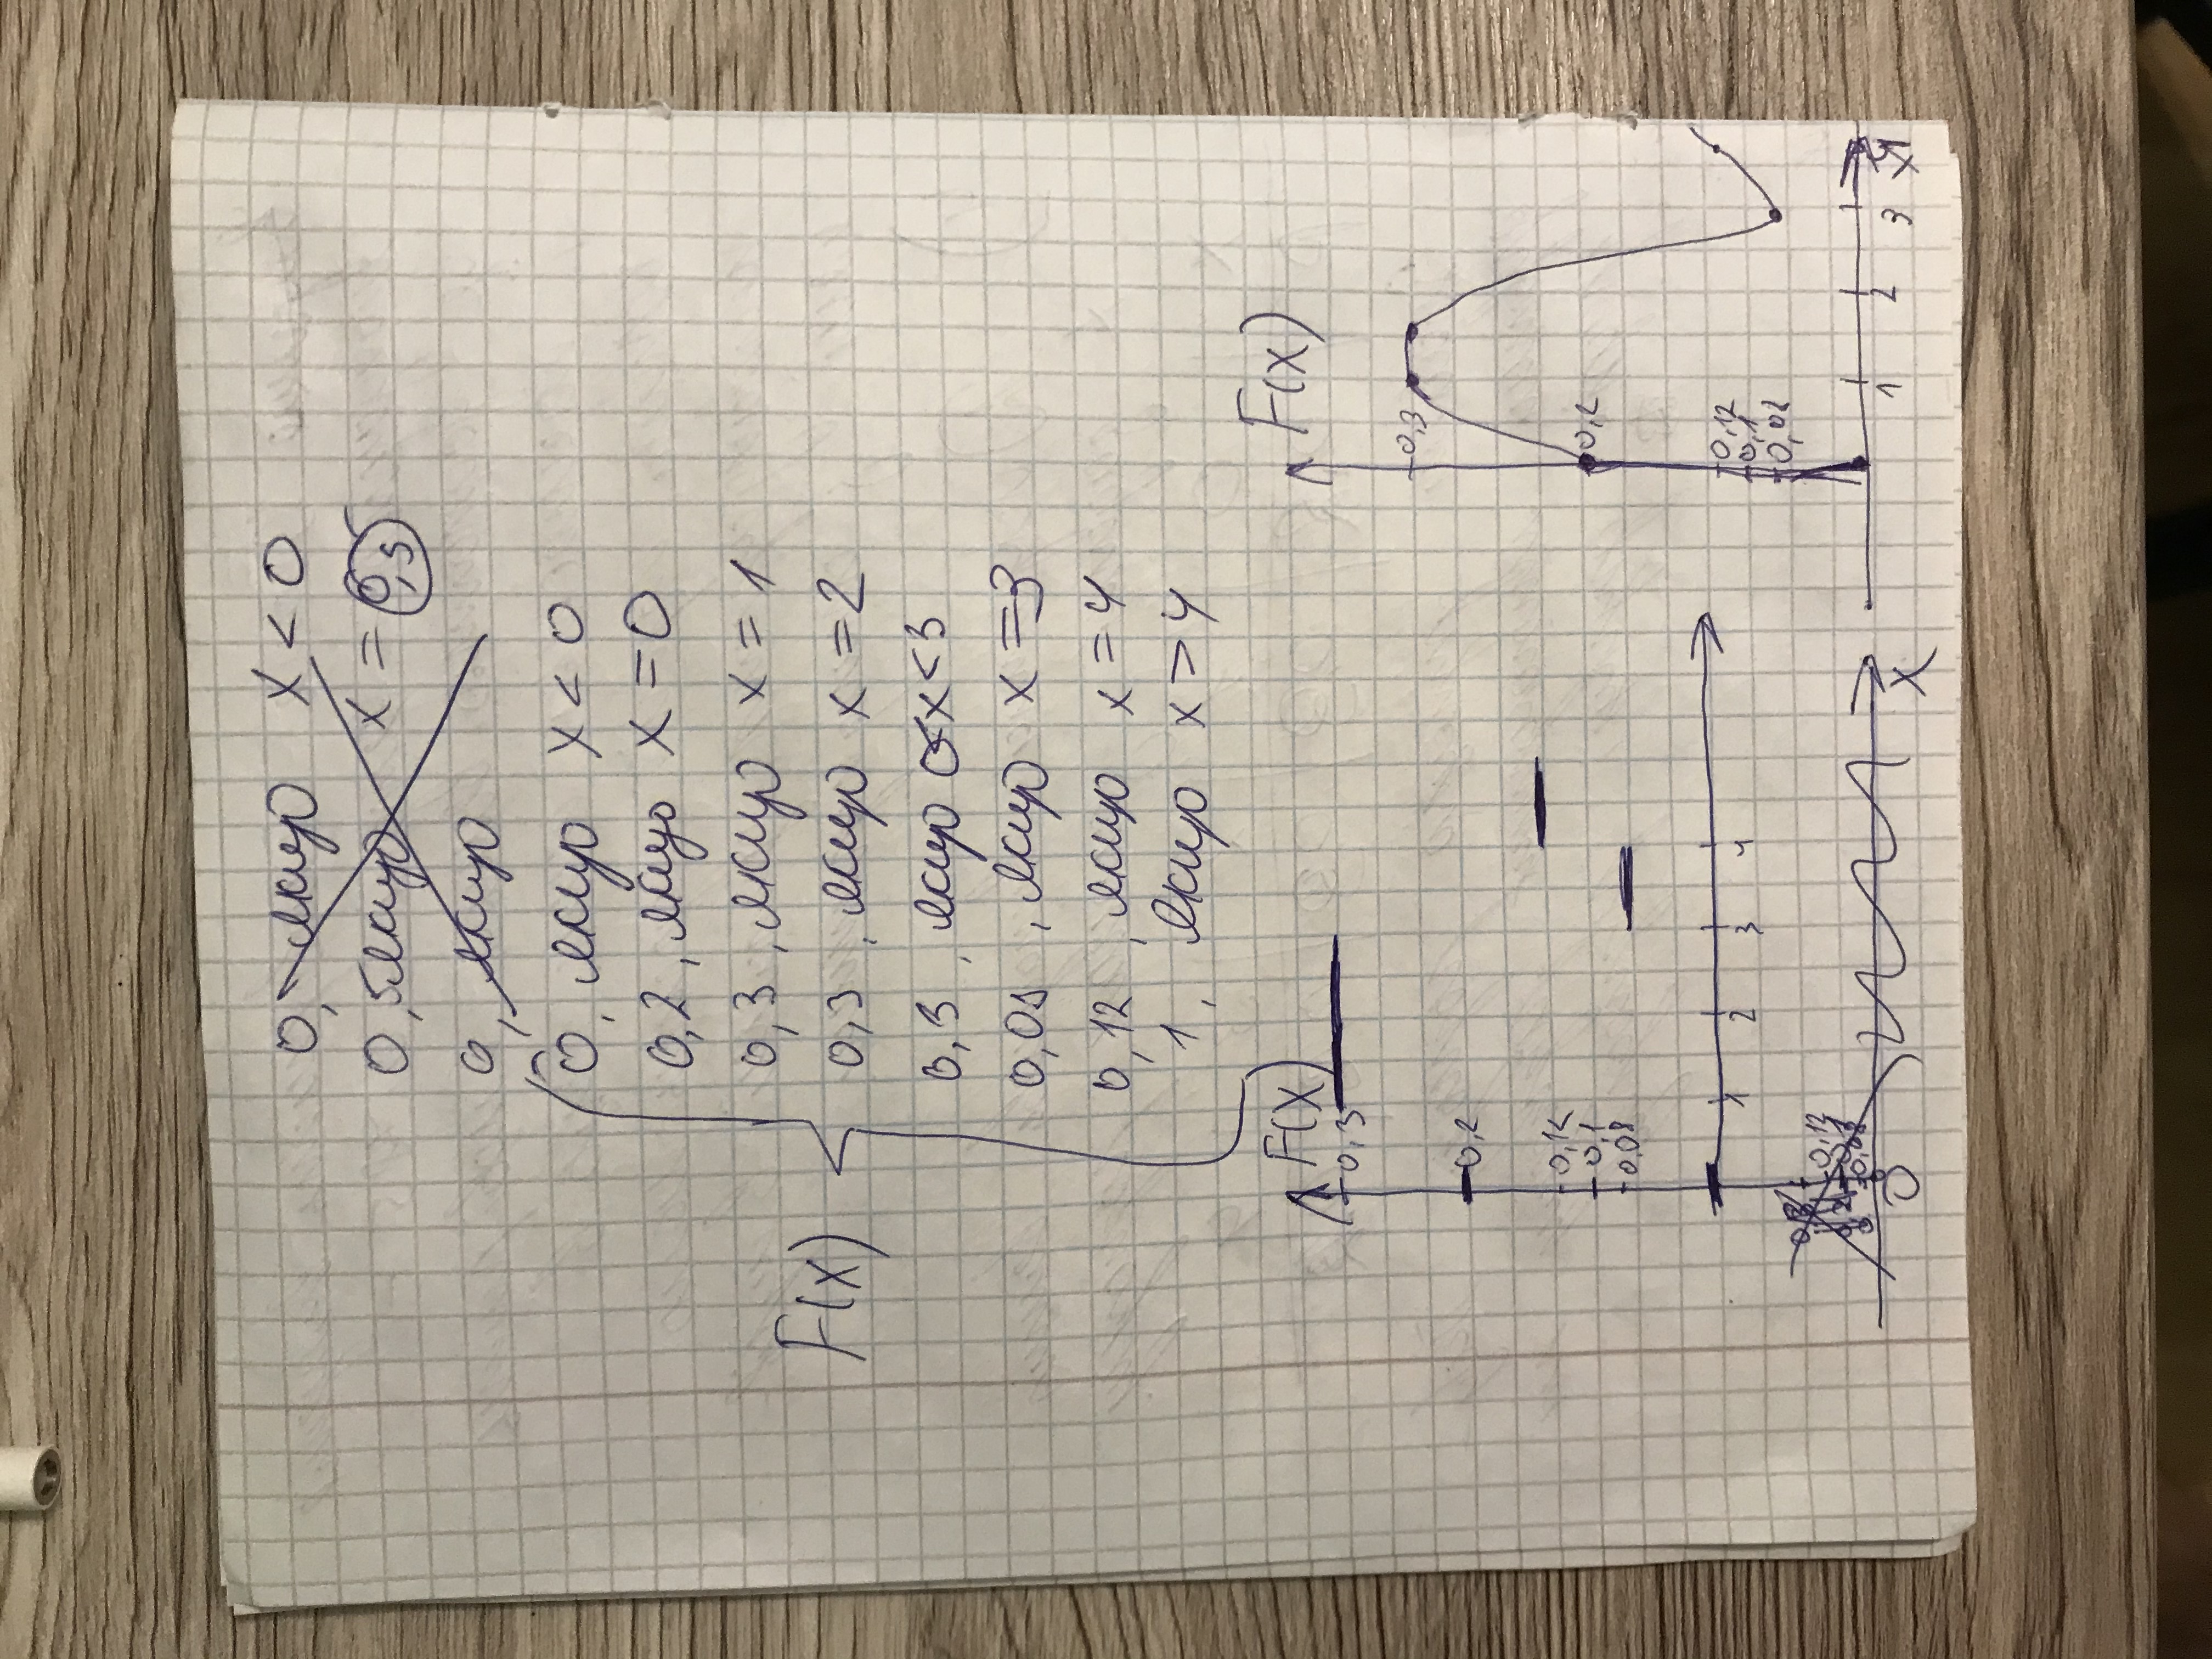 0, якщо x < 0
0,5 якщо x = 0,5
0, якщо
0, якщо x < 0
0,2, якщо x = 0
0,3, якщо x = 1
F(x)
0,3, якщо x = 2
0,3, якщо 0<x<3
0,08, якщо x = 3
0,12, якщо x = 4
1, якщо x > 4
F(x)
0,3
0,2
0,12
0,1
0,08
1 2 3 4
0,12
0
x
F(x)
0,3
0,2
0,12
0,1
0,08
1 2 3 4
x